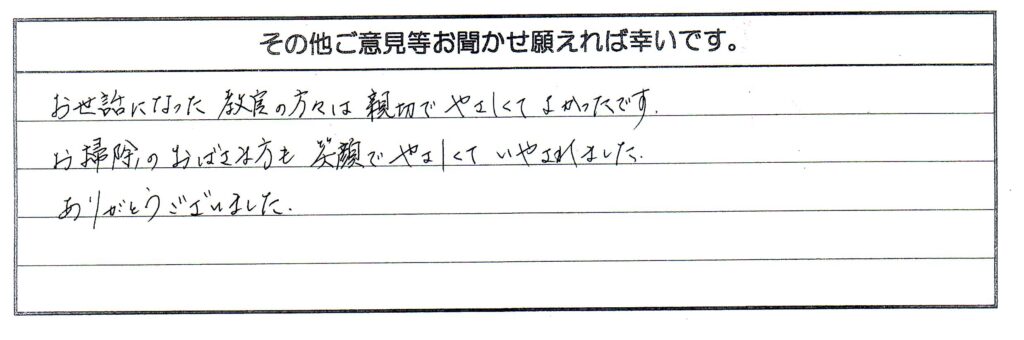 その他ご意見等お聞かせ願えれば幸いです。
お世話になった 教官の方々は 親切で やさしくて よかったです.
お掃除のおばさま方も 笑顔でやさしくて いやされました.
ありがとうございました.